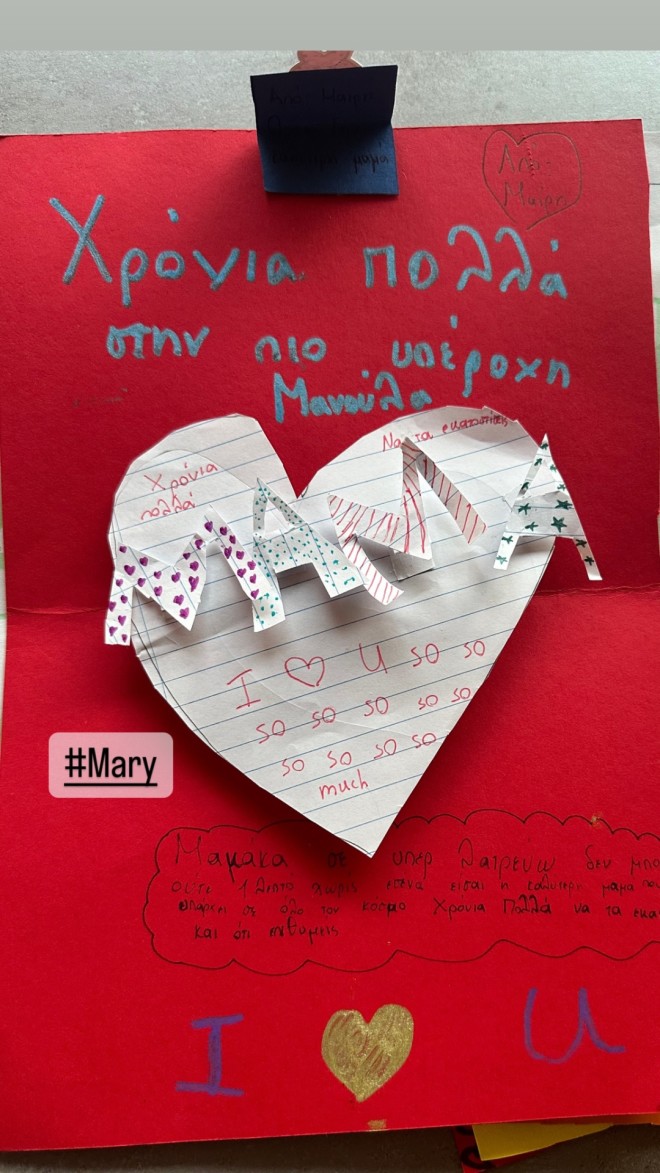 Από: Μαίρη
μαμά
Από:
Μαίρη
Χρόνια πολλά
στην πιο υπέροχη
Μανούλα
Χρόνια
πολλά
Να τα εκατοστίσεις
ΜΑΜΑ
I ♡ U so so
so so so so so
so so so so
much
#Mary
Μαμακα σε υπερ λατρευω δεν μπο
ουτε 1 λεπτο χωρις εσενα εισαι η καλυτερη μαμα που
υπαρχει σε όλο τον κοσμο Χρονια Πολλά να τα εκα
και ότι επιθυμεις
I ♡ U